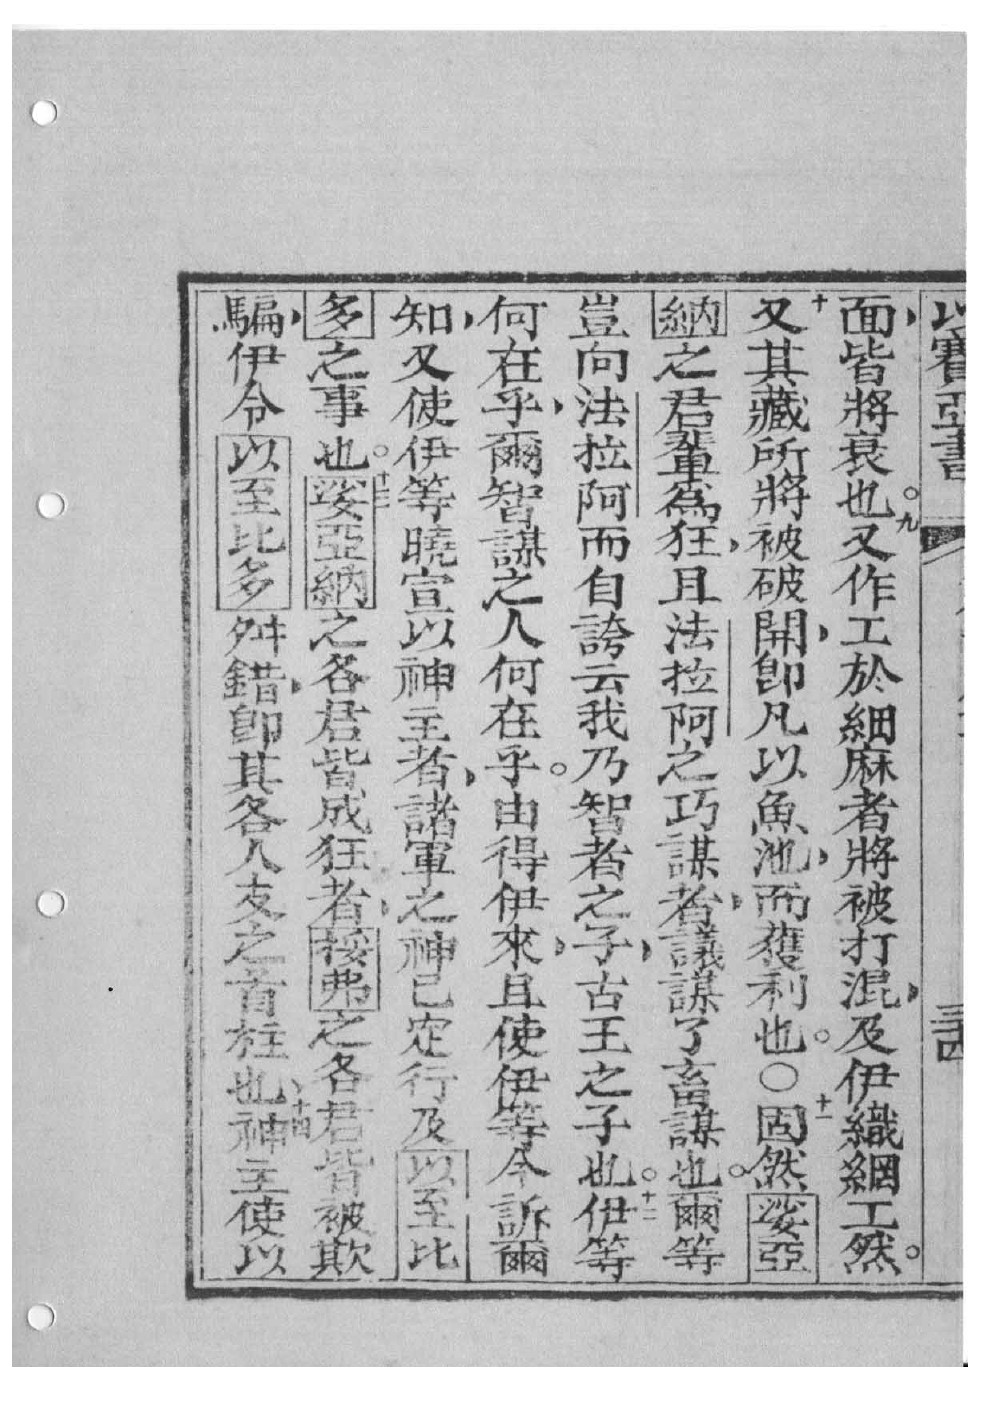 以賽亞書 三十四
面皆將衰也。九又作工於細麻者將被打混及伊織網工然。
十又其藏所將被破開卽凡以魚池而獲利也。○十一固然娑亞
納之君輩為狂且法拉阿之巧謀者議謀了畜謀也。爾等
豈向法拉阿而自誇云我乃智者之子古王之子也。十二伊等
何在乎爾智謀之人何在乎。由得伊來且使伊等今訴爾
知又使伊等曉宣以神主者諸軍之神已定行及以至比
多之事也。十三娑亞納之各君皆成狂者㧊弗之各君皆被欺
騙伊令以至比多舛錯卽其各人支之首柱也十四神主使以